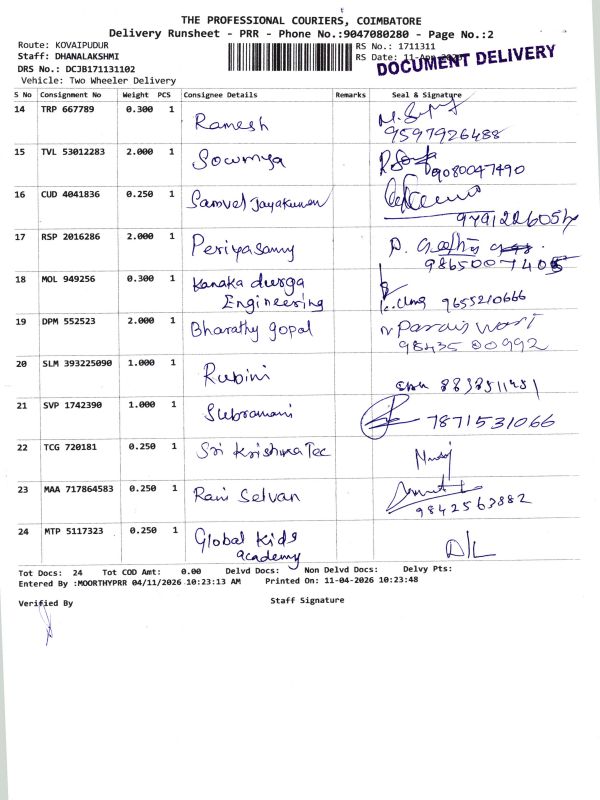 THE PROFESSIONAL COURIERS, COIMBATORE
Delivery Runsheet - PRR - Phone No.:9047080280 - Page No.:2
Route: KOVAIPUDUR RS No.: 1711311
Staff: DHANALAKSHMI RS Date: 11-Apr-2026
DOCUMENT DELIVERY
DRS No.: DCJB171131102
Vehicle: Two Wheeler Delivery
S No Consignment No Weight PCS Consignee Details Remarks Seal & Signature
14 TRP 667789 0.300 1 Ramesh
9597926488
15 TVL 53012283 2.000 1 Sowmya 9080047490
16 CUD 4041836 0.250 1 Samvel Jayakumar
9791226054
17 RSP 2016286 2.000 1 Periyasamy
9865007405
18 MOL 949256 0.300 1 Kanaka durga
Engineering 9655210666
19 DPM 552523 2.000 1 Bharathy gopal
98435 00992
20 SLM 393225090 1.000 1 Rubini
21 SVP 1742390 1.000 1 Subramani 7871531066
22 TCG 720181 0.250 1 Sri Krishna Tec
23 MAA 717864583 0.250 1 Ravi Selvan
9842563882
24 MTP 5117323 0.250 1 Global Kids
academy D/L
Tot Docs: 24 Tot COD Amt: 0.00 Delvd Docs: Non Delvd Docs: Delvy Pts:
Entered By :MOORTHYPRR 04/11/2026 10:23:13 AM Printed On: 11-04-2026 10:23:48
Verified By Staff Signature